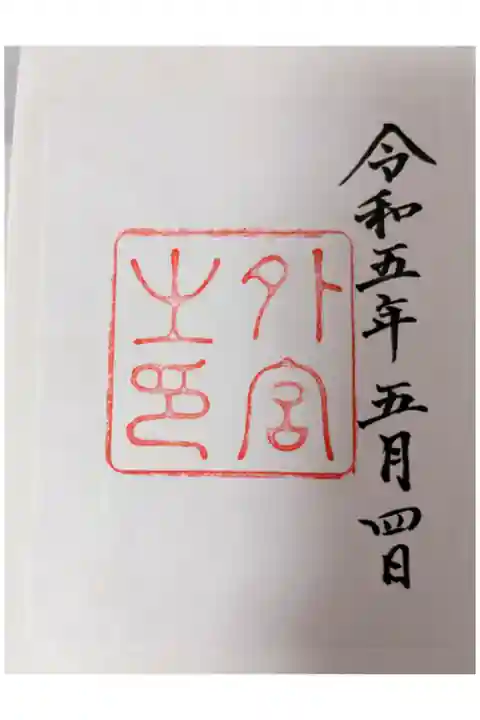 令和五年五月四日
外宮
之印